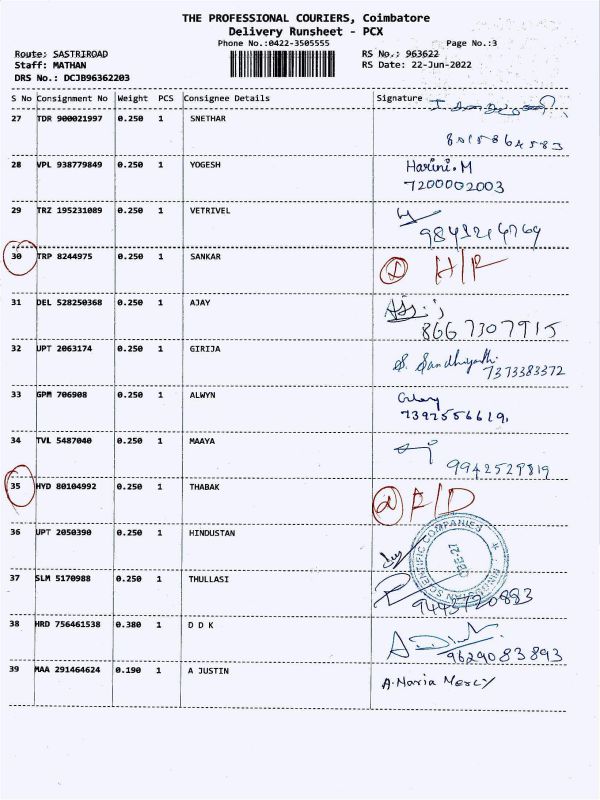 THE PROFESSIONAL COURIERS, Coimbatore
Delivery Runsheet - PCX
Phone No.:0422-3505555 Page No.:3
Route: SASTRIROAD RS No.: 963622
Staff: MATHAN RS Date: 22-Jun-2022
DRS No.: DCJB96362203
S No Consignment No Weight PCS Consignee Details Signature
27 TDR 900021997 0.250 1 SNETHAR
8015864583
28 VPL 938779849 0.250 1 YOGESH Harini.M
7200002003
29 TRZ 195231089 0.250 1 VETRIVEL
30 TRP 8244975 0.250 1 SANKAR
31 DEL 528250368 0.250 1 AJAY
8667307915
32 UPT 2063174 0.250 1 GIRIJA
7373383372
33 GPM 706908 0.250 1 ALWYN
34 TVL 5487040 0.250 1 MAAYA
9942529819
35 HYD 80104992 0.250 1 THABAK
36 UPT 2050390 0.250 1 HINDUSTAN
HINDUSTAN SCIENTIFIC COMPANIES
37 SLM 5170988 0.250 1 THULLASI
9443720883
38 HRD 756461538 0.380 1 D D K
9629083893
39 MAA 291464624 0.190 1 A JUSTIN A.Maria Mercy